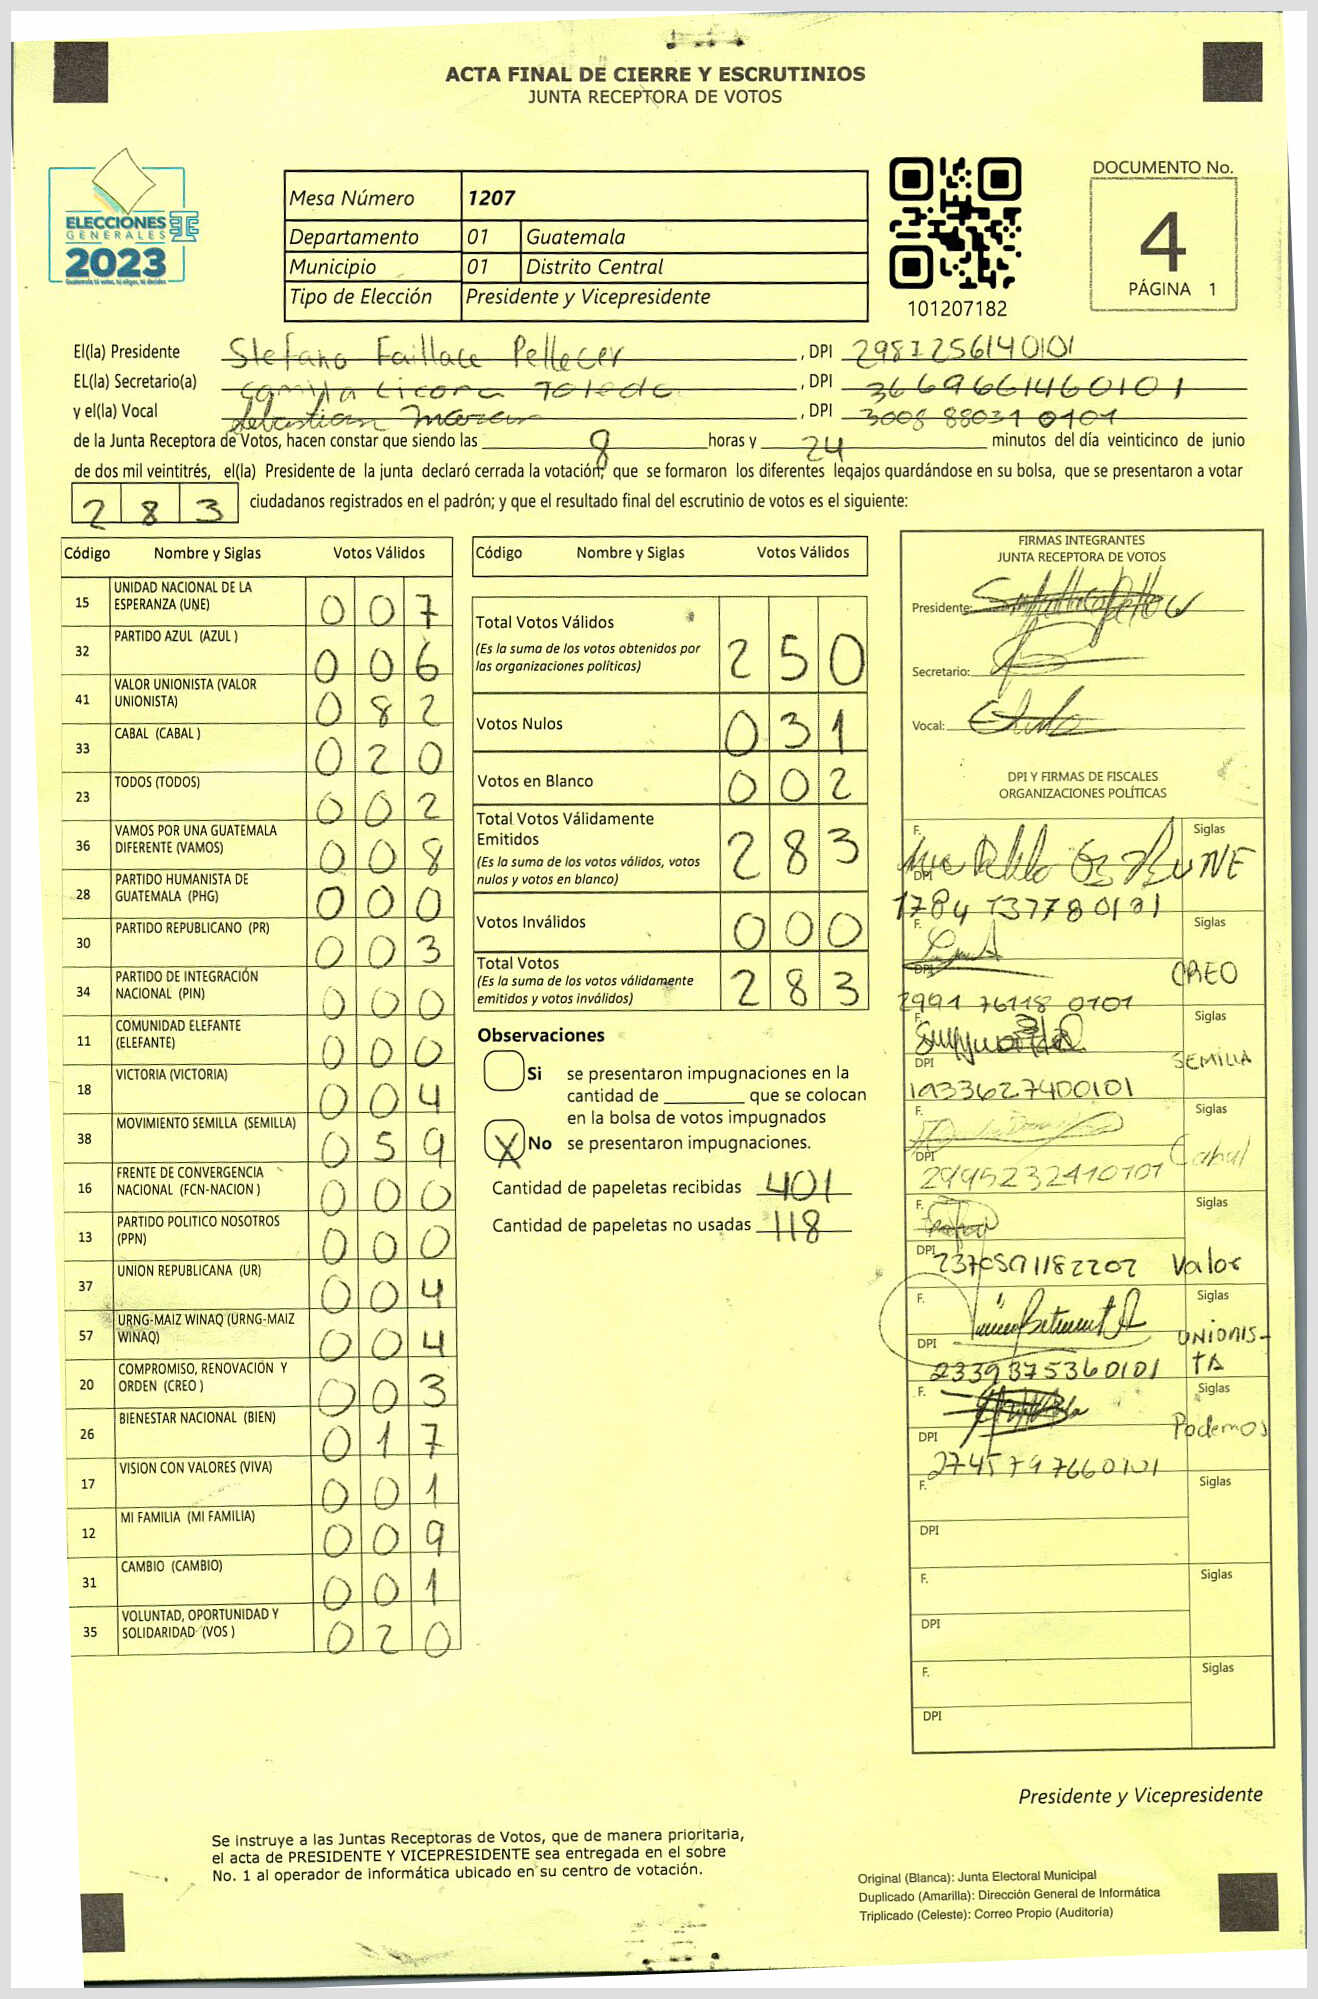 ACTA FINAL DE CIERRE Y ESCRUTINIOS
JUNTA RECEPTORA DE VOTOS
ELECCIONES
GENERALES
2023
Mesa Número 1207
Departamento 01 Guatemala
Municipio 01 Distrito Central
Tipo de Elección Presidente y Vicepresidente
101207182
DOCUMENTO No.
4
PÁGINA 1
El(la) Presidente Stefano Faillace Pellecer , DPI 2981256140101
EL(la) Secretario(a) Camila Licona Toledo , DPI 3669661460101
y el(la) Vocal Sebastian , DPI 3008 88031 0101
de la Junta Receptora de Votos, hacen constar que siendo las 8 horas y 24 minutos del día veinticinco de junio
de dos mil veintitrés, el(la) Presidente de la junta declaró cerrada la votación; que se formaron los diferentes legajos quardándose en su bolsa, que se presentaron a votar
283 ciudadanos registrados en el padrón; y que el resultado final del escrutinio de votos es el siguiente:
Código Nombre y Siglas Votos Válidos
15 UNIDAD NACIONAL DE LA ESPERANZA (UNE) 007
32 PARTIDO AZUL (AZUL ) 006
41 VALOR UNIONISTA (VALOR UNIONISTA) 082
33 CABAL (CABAL ) 020
23 TODOS (TODOS) 002
36 VAMOS POR UNA GUATEMALA DIFERENTE (VAMOS) 008
28 PARTIDO HUMANISTA DE GUATEMALA (PHG) 000
30 PARTIDO REPUBLICANO (PR) 003
34 PARTIDO DE INTEGRACIÓN NACIONAL (PIN) 000
11 COMUNIDAD ELEFANTE (ELEFANTE) 000
18 VICTORIA (VICTORIA) 004
38 MOVIMIENTO SEMILLA (SEMILLA) 059
16 FRENTE DE CONVERGENCIA NACIONAL (FCN-NACION ) 000
13 PARTIDO POLITICO NOSOTROS (PPN) 000
37 UNION REPUBLICANA (UR) 004
57 URNG-MAIZ WINAQ (URNG-MAIZ WINAQ) 004
20 COMPROMISO, RENOVACION Y ORDEN (CREO ) 003
26 BIENESTAR NACIONAL (BIEN) 017
17 VISION CON VALORES (VIVA) 001
12 MI FAMILIA (MI FAMILIA) 009
31 CAMBIO (CAMBIO) 001
35 VOLUNTAD, OPORTUNIDAD Y SOLIDARIDAD (VOS ) 020
Código Nombre y Siglas Votos Válidos
Total Votos Válidos 250
(Es la suma de los votos obtenidos por
las organizaciones politicas)
Votos Nulos 031
Votos en Blanco 002
Total Votos Válidamente
Emitidos 283
(Es la suma de los votos válidos, votos
nulos y votos en blanco)
Votos Inválidos 000
Total Votos 283
(Es la suma de los votos válidamente
emitidos y votos inválidos)
Observaciones
Si se presentaron impugnaciones en la
cantidad de ________ que se colocan
en la bolsa de votos impugnados
X No se presentaron impugnaciones.
Cantidad de papeletas recibidas 401
Cantidad de papeletas no usadas 118
FIRMAS INTEGRANTES
JUNTA RECEPTORA DE VOTOS
Presidente:
Secretario:
Vocal:
DPI Y FIRMAS DE FISCALES
ORGANIZACIONES POLÍTICAS
F. Siglas UNE
DPI 1784 137780101
F. Siglas CREO
DPI 2991 76118 0101
F. Siglas SEMILLA
DPI 1933627400101
F. Siglas Cabal
DPI 2995232410101
F. Siglas Valor
DPI 2370591182202
F. Siglas UNIONIS-
TA
DPI 2339375360101
F. Siglas Podemos
DPI 2745797660101
F. Siglas
DPI
F. Siglas
DPI
F. Siglas
DPI
Presidente y Vicepresidente
Se instruye a las Juntas Receptoras de Votos, que de manera prioritaria,
el acta de PRESIDENTE Y VICEPRESIDENTE sea entregada en el sobre
No. 1 al operador de informática ubicado en su centro de votación.
Original (Blanca): Junta Electoral Municipal
Duplicado (Amarilla): Dirección General de Informática
Triplicado (Celeste): Correo Propio (Auditoria)